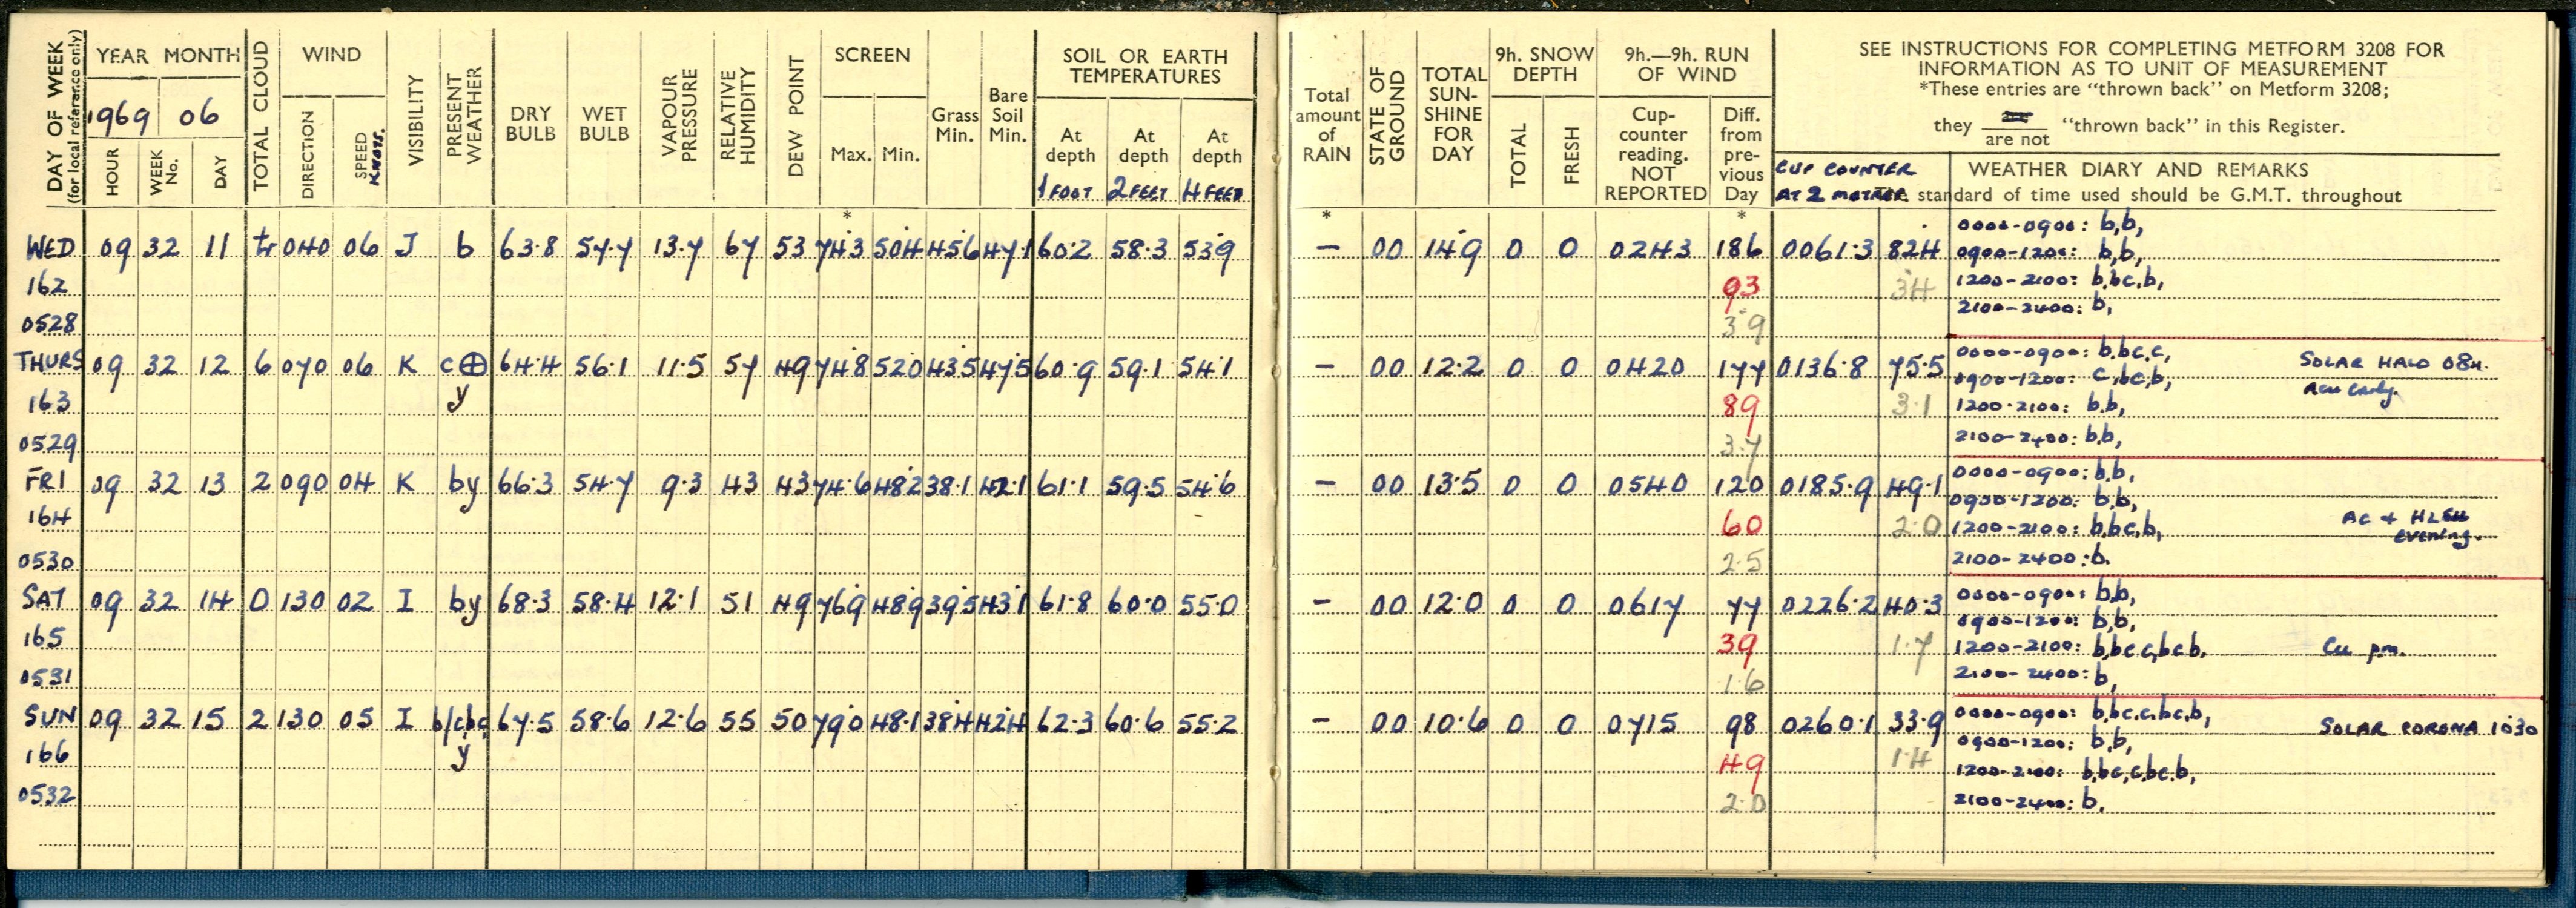 DAY OF WEEK
(for local reference only)
YEAR MONTH
1969 06
HOUR
WEEK No.
DAY
TOTAL CLOUD
WIND
DIRECTION
SPEED
KNOTS.
VISIBILITY
PRESENT WEATHER
DRY BULB
WET BULB
VAPOUR PRESSURE
RELATIVE HUMIDITY
DEW POINT
SCREEN
Max. Min.
Grass Min.
Bare Soil Min.
SOIL OR EARTH TEMPERATURES
At depth At depth At depth
1 FOOT 2 FEET 4 FEET
Total amount of RAIN
STATE OF GROUND
TOTAL SUN-SHINE FOR DAY
9h. SNOW DEPTH
TOTAL
FRESH
9h.—9h. RUN OF WIND
Cup-counter reading. NOT REPORTED
Diff. from pre-vious Day
SEE INSTRUCTIONS FOR COMPLETING METFORM 3208 FOR
INFORMATION AS TO UNIT OF MEASUREMENT
*These entries are "thrown back" on Metform 3208;
they are not "thrown back" in this Register.
CUP COUNTER
AT 2 METRES.
WEATHER DIARY AND REMARKS
standard of time used should be G.M.T. throughout
* * *
WED 09 32 11 tr 040 06 J b 63.8 57.7 13.7 67 53 74.3 50.4 45.6 47.1 60.2 58.3 53.9 – 00 14.9 0 0 0243 186 0061.3 82.4
162 93 34
0528 3.9
0000-0900: b,b,
0900-1200: b,b,
1200-2100: b,bc,b,
2100-2400: b,
THURS 09 32 12 6 070 06 K c⊕ 64.4 56.1 11.5 57 49 74.8 52.0 43.5 47.5 60.9 59.1 54.1 – 00 12.2 0 0 0420 177 0136.8 75.5
163 y 89 3.1
0529 3.7
0000-0900: b,bc,c, SOLAR HALO 08H.
0900-1200: c,bc,b, early.
1200-2100: b,b,
2100-2400: b,b,
FRI 09 32 13 2 090 04 K by 66.3 54.7 9.3 43 43 74.6 48.2 38.1 42.1 61.1 59.5 54.6 – 00 13.5 0 0 0540 120 0185.9 49.1
164 60 2.0
0530 2.5
0000-0900: b,b,
0900-1200: b,b,
1200-2100: b,bc,b, AC +
evening.
2100-2400: b.
SAT 09 32 14 0 130 02 I by 68.3 58.4 12.1 51 49 76.9 48.9 39.5 43.1 61.8 60.0 55.0 – 00 12.0 0 0 0617 77 0226.2 40.3
165 39 1.7
0531 1.6
0000-0900: b,b,
0900-1200: b,b,
1200-2100: b,bc,c,bc,b, Cu pm.
2100-2400: b,
SUN 09 32 15 2 130 05 I b/cbc 67.5 58.6 12.6 55 50 79.0 48.1 38.4 42.4 62.3 60.6 55.2 – 00 10.6 0 0 0715 98 0260.1 33.9
166 y 49 1.4
0532 2.0
0000-0900: b,bc,c,bc,b, SOLAR CORONA 1030
0900-1200: b,b,
1200-2100: b,bc,c,bc,b,
2100-2400: b,